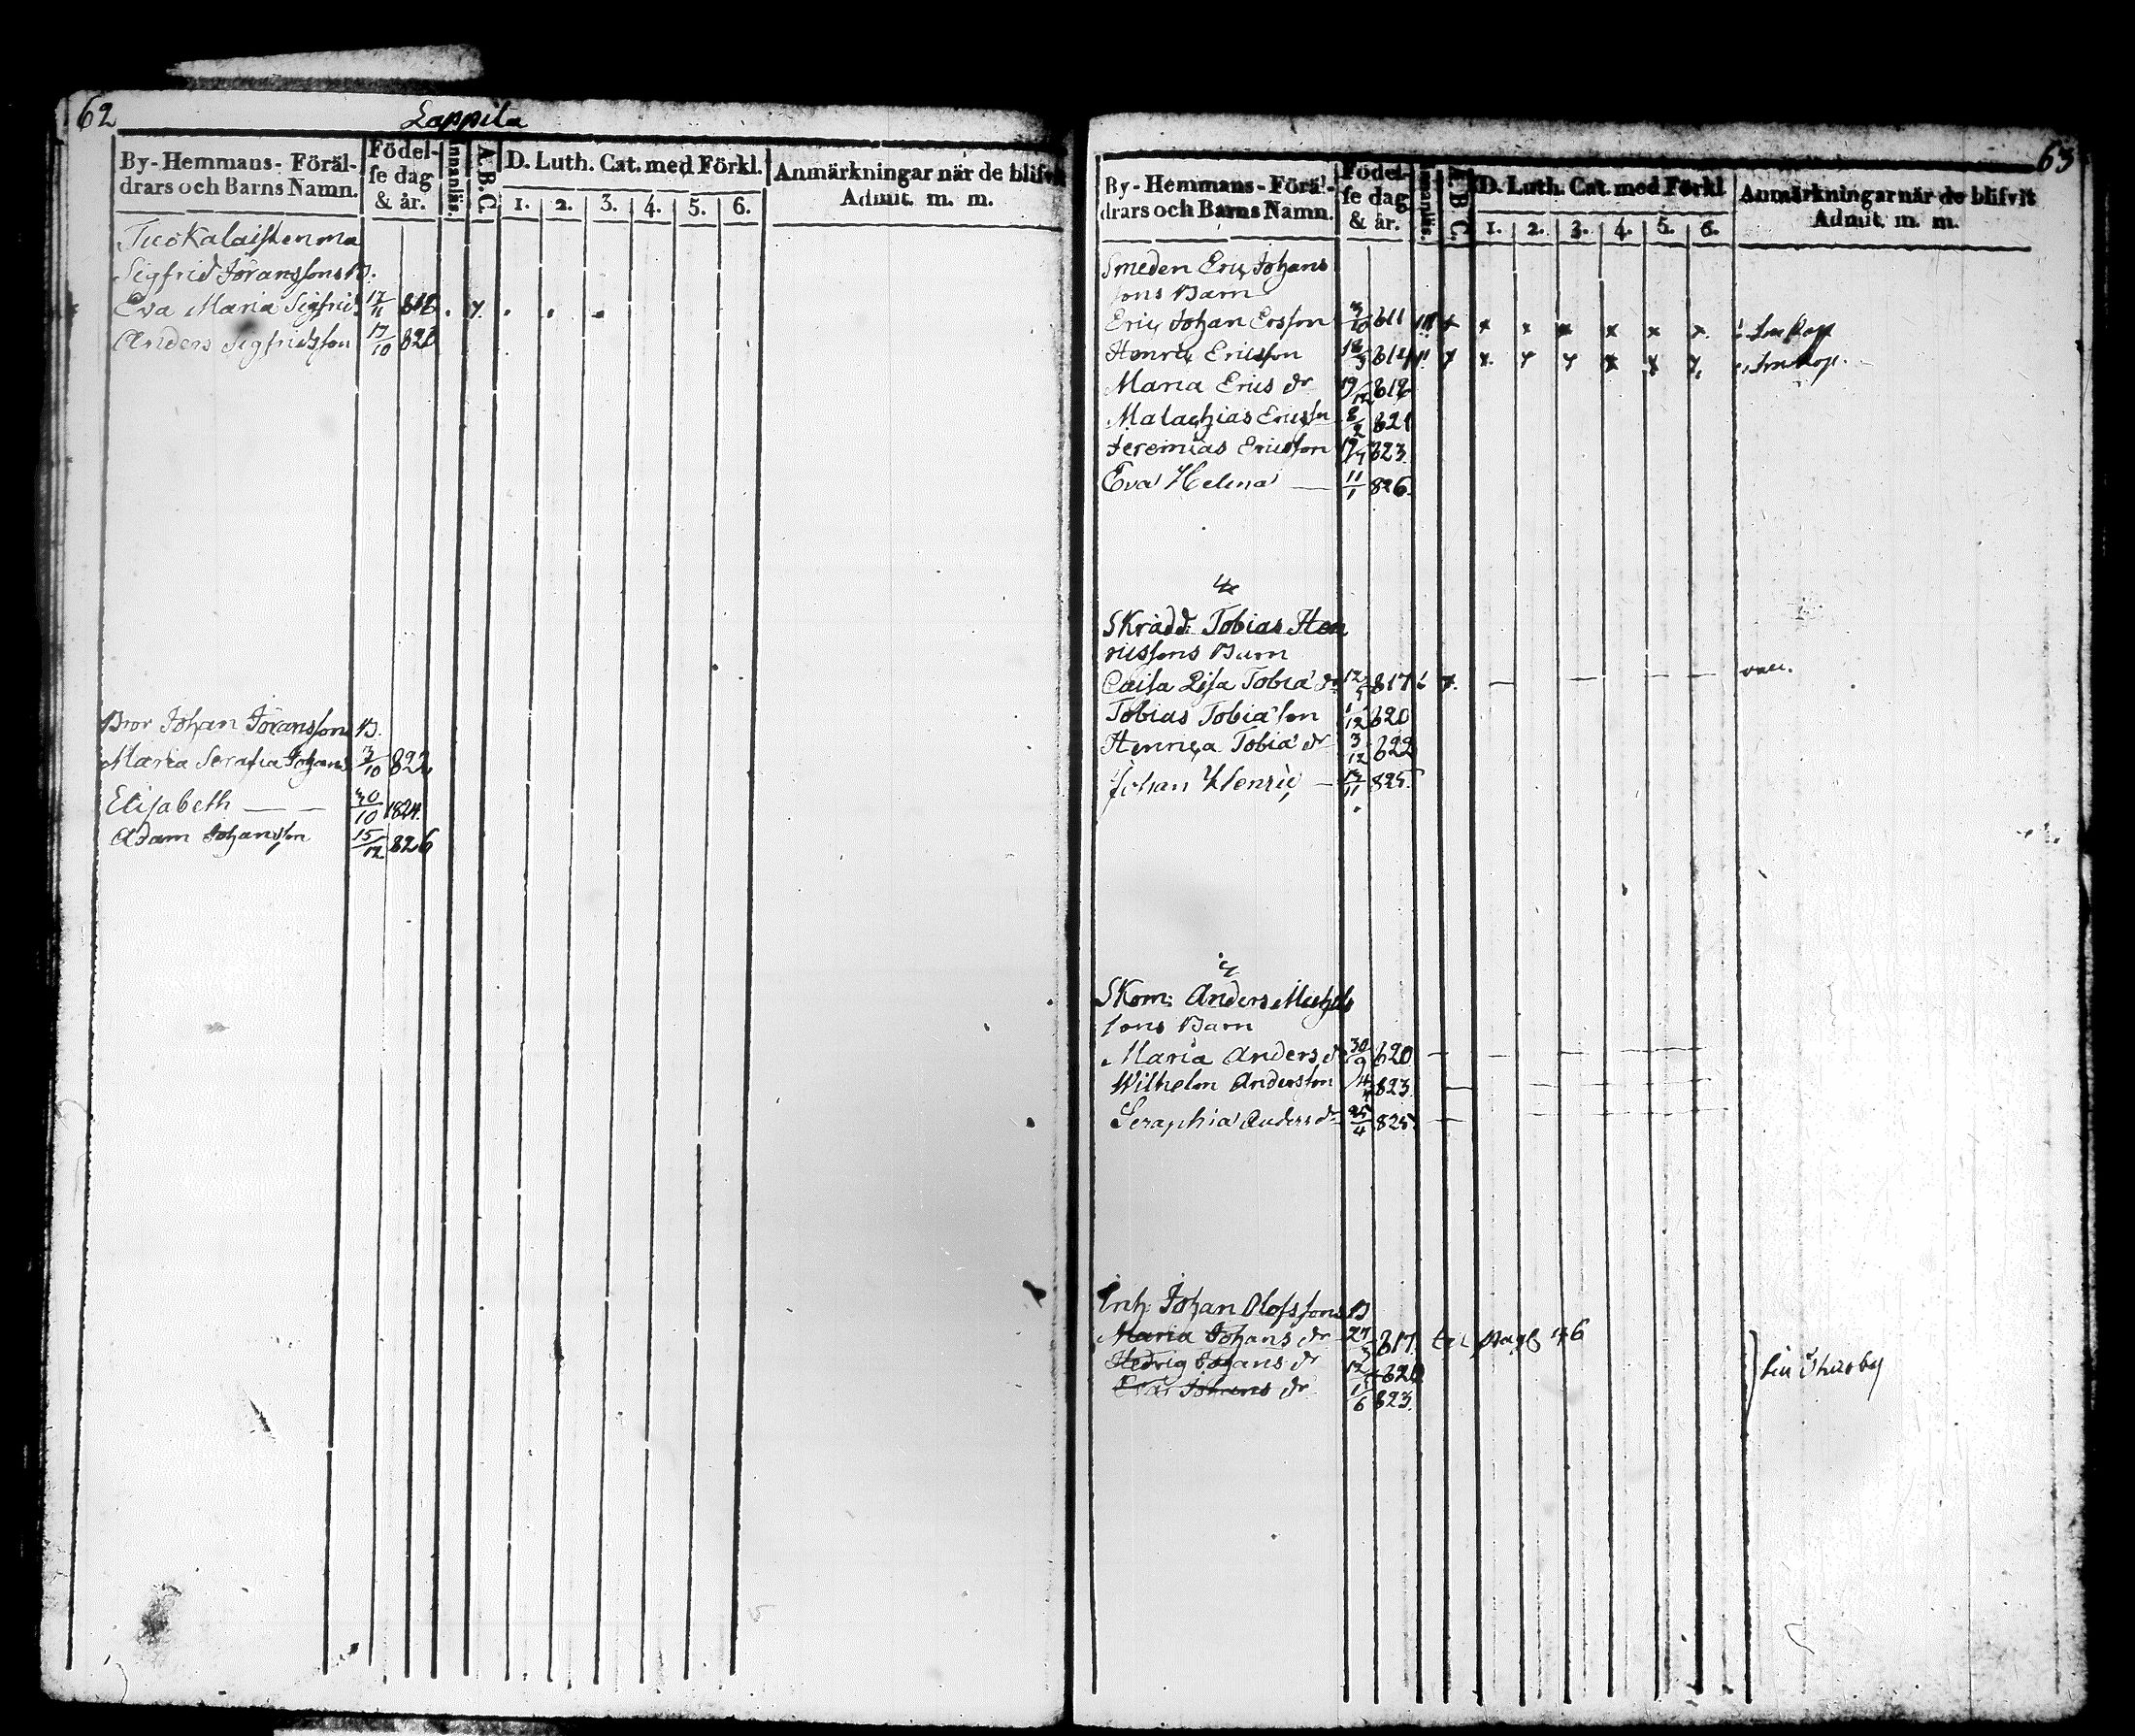 62
Lappila
By-Hemmans-Föräl-
drars och Barns Namn.
Födel-
se dag
& år.
Innanläs.
A. B. C.
D. Luth. Cat. med Förkl.
1. 2. 3. 4. 5. 6.
Anmärkningar när de blifvit
Admit. m. m.
Tuokalaisten ma
Sigfrid Göranssons B.
Eva Maria Sigfrids 17/11 818
Anders Sigfridsson 17/10 823
Bror Johan Göransson B.
Maria Serafia Johans 3/10 822
Elisabeth — — 30/10 1824.
Adam Johansson 15/12 826
63
By-Hemmans-Föräl-
drars och Barns Namn.
Födel-
se dag
& år.
Innanläs.
A. B. C.
D. Luth. Cat. med Förkl
1. 2. 3. 4. 5. 6.
Anmärkningar när de blifvit
Admit. m. m.
Smeden Eric Johans
sons Barn
Eric Johan Ersson 3/10 811 x x x x x x x
Henric Ericsson 814 x x x x x x x
Maria Erics dr 19/12 818
Malachias Ericssn 8/2 821
Jeremias Ericsson 823.
Eva Helena — 11/1 826.
Skrädd: Tobias Hen
ricssons Barn
Caisa Lisa Tobiæ dr 817
Tobias Tobiæson 1/12 820
Henrica Tobiæ dr 3/12 822
Johan Henric — 825.
Skom: Anders Michels
sons Barn
Maria Anders dr 30/9 820
Wilhelm Andersson 823.
Seraphia Anders dr 25/4 825
Inh: Johan Olofssons B
Maria Johans dr 27/3 817. till pag: 46
Hedvig Johans dr 820
Eva Johans dr 6 823.